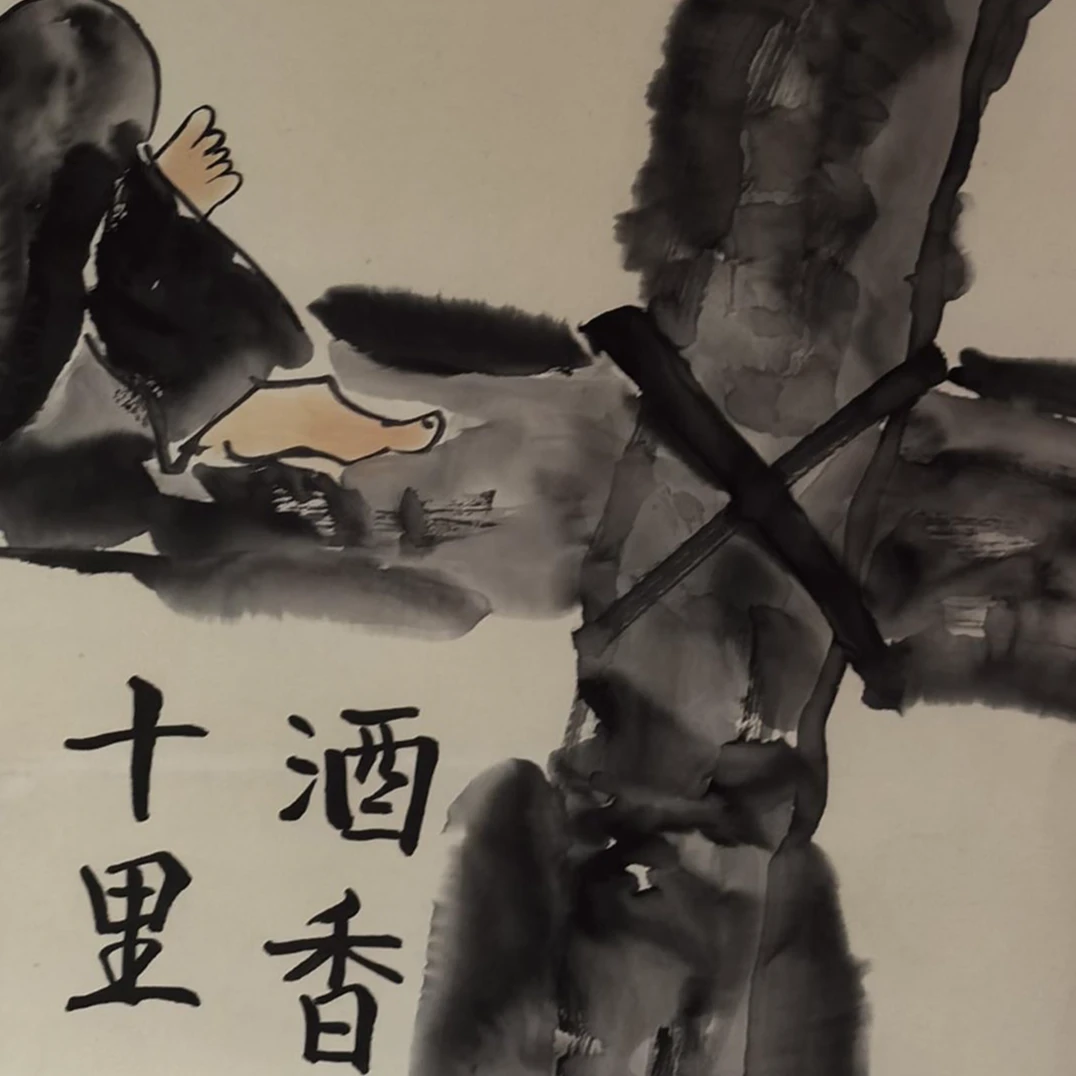 酒香
十里